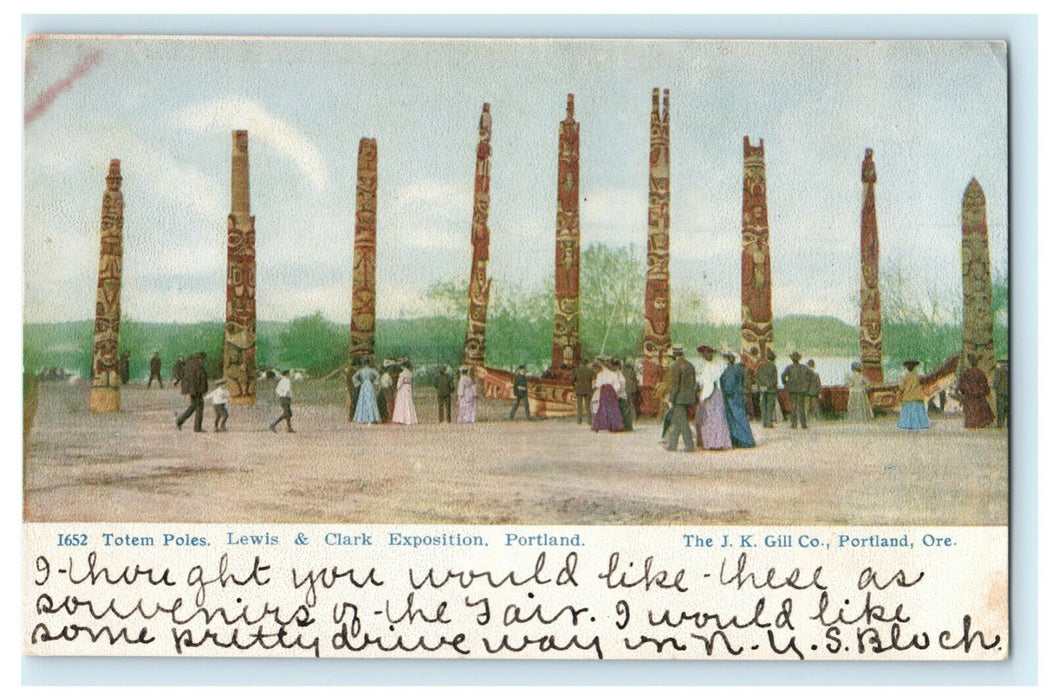 1652 Totem Poles. Lewis & Clark Exposition, Portland. The J. K. Gill Co., Portland, Ore.
I thought you would like these as
souvenirs of the Fair. I would like
some pretty drive way in N. Y. S. Bloch.